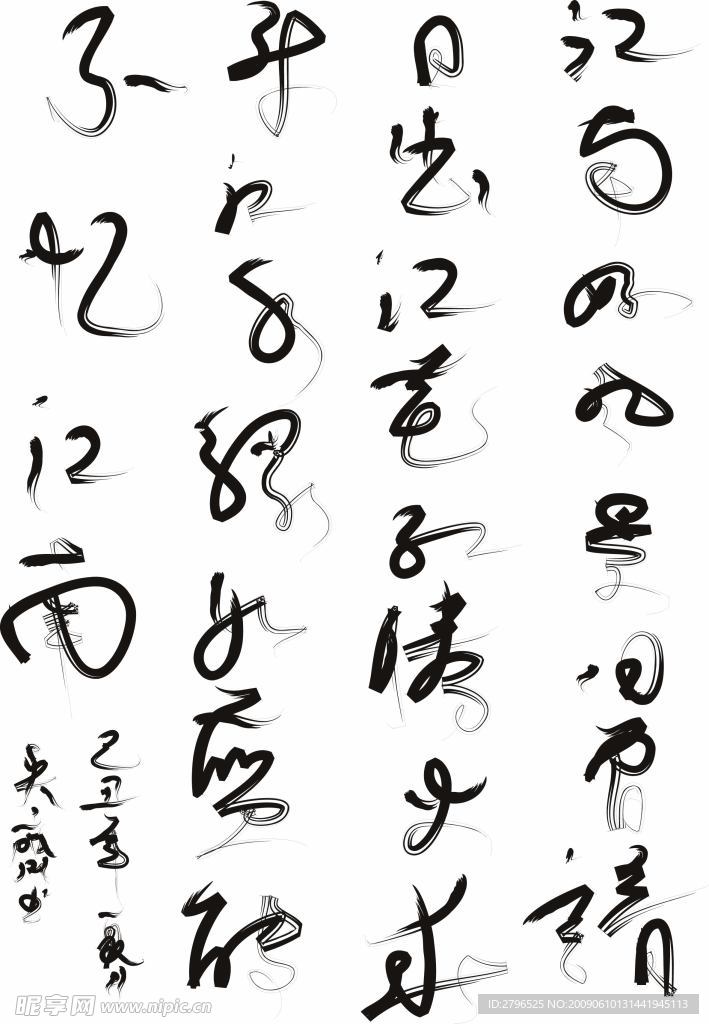 江南好风景旧曾谙
日出江花红胜火春
来江水绿如蓝能
不忆江南
己丑年
昵享网 www.nipic.cn
ID:2796525 NO:20090610131441945113